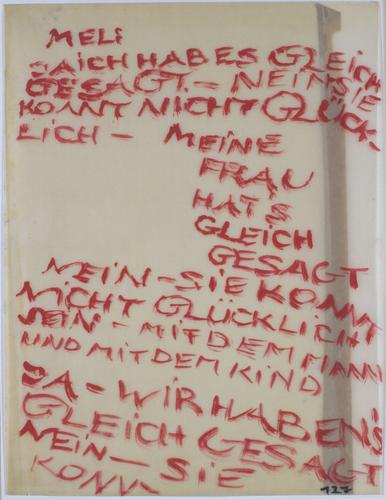 MELI
JA ICH HAB ES GLEICH
GESAGT. – NEIN SIE
KONNT NICHT GLÜCK-
LICH – MEINE
FRAU
HATS
GLEICH
GESAGT
NEIN – SIE KONNT
NICHT GLÜCKLICH
SEIN – MIT DEM MANN
UND MIT DEM KIND
JA – WIR HABENS
GLEICH GESAGT
NEIN – SIE
KONN-
127